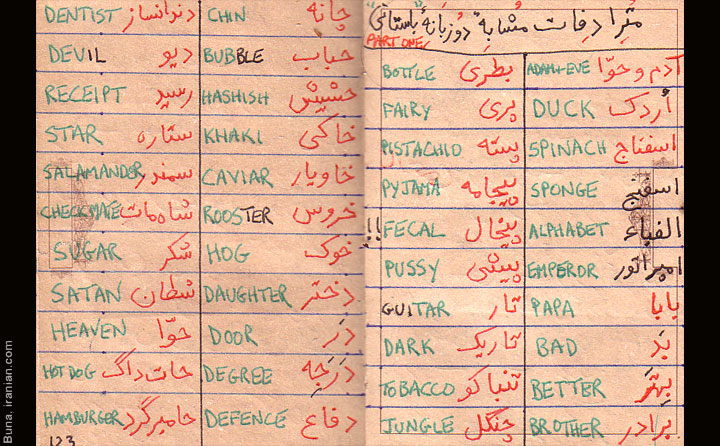 مترادفات مشابه دو زبانهٔ "باستانی"
PART ONE
ADAM+EVE آدم و حوّا
DUCK اُردک
SPINACH اسفناج
SPONGE اسفنج
ALPHABET الفباء
EMPEROR امپراتور
PAPA بابا
BAD بَد
BETTER بهتَر
BROTHER برادر
BOTTLE بطری
FAIRY پری
PISTACHIO پسته
PYJAMA پیجامه
FECAL پیخال !!
PUSSY پیشی
GUITAR تار
DARK تاریک
TOBACCO تنباکو
JUNGLE جنگل
CHIN چانه
BUBBLE حباب
HASHISH حشیش
KHAKI خاکی
CAVIAR خاویار
ROOSTER خروس
HOG خوک
DAUGHTER دختر
DOOR دَر
DEGREE دَرَجه
DEFENCE دفاع
DENTIST دندانساز
DEVIL دیو
RECEIPT رسید
STAR ستاره
SALAMANDER سمندر
CHECKMATE شاه مات
SUGAR شکر
SATAN شطان
HEAVEN حوّا
HOT DOG حات داگ
HAMBURGER حامبرگرد
123
Buna, iranian.com